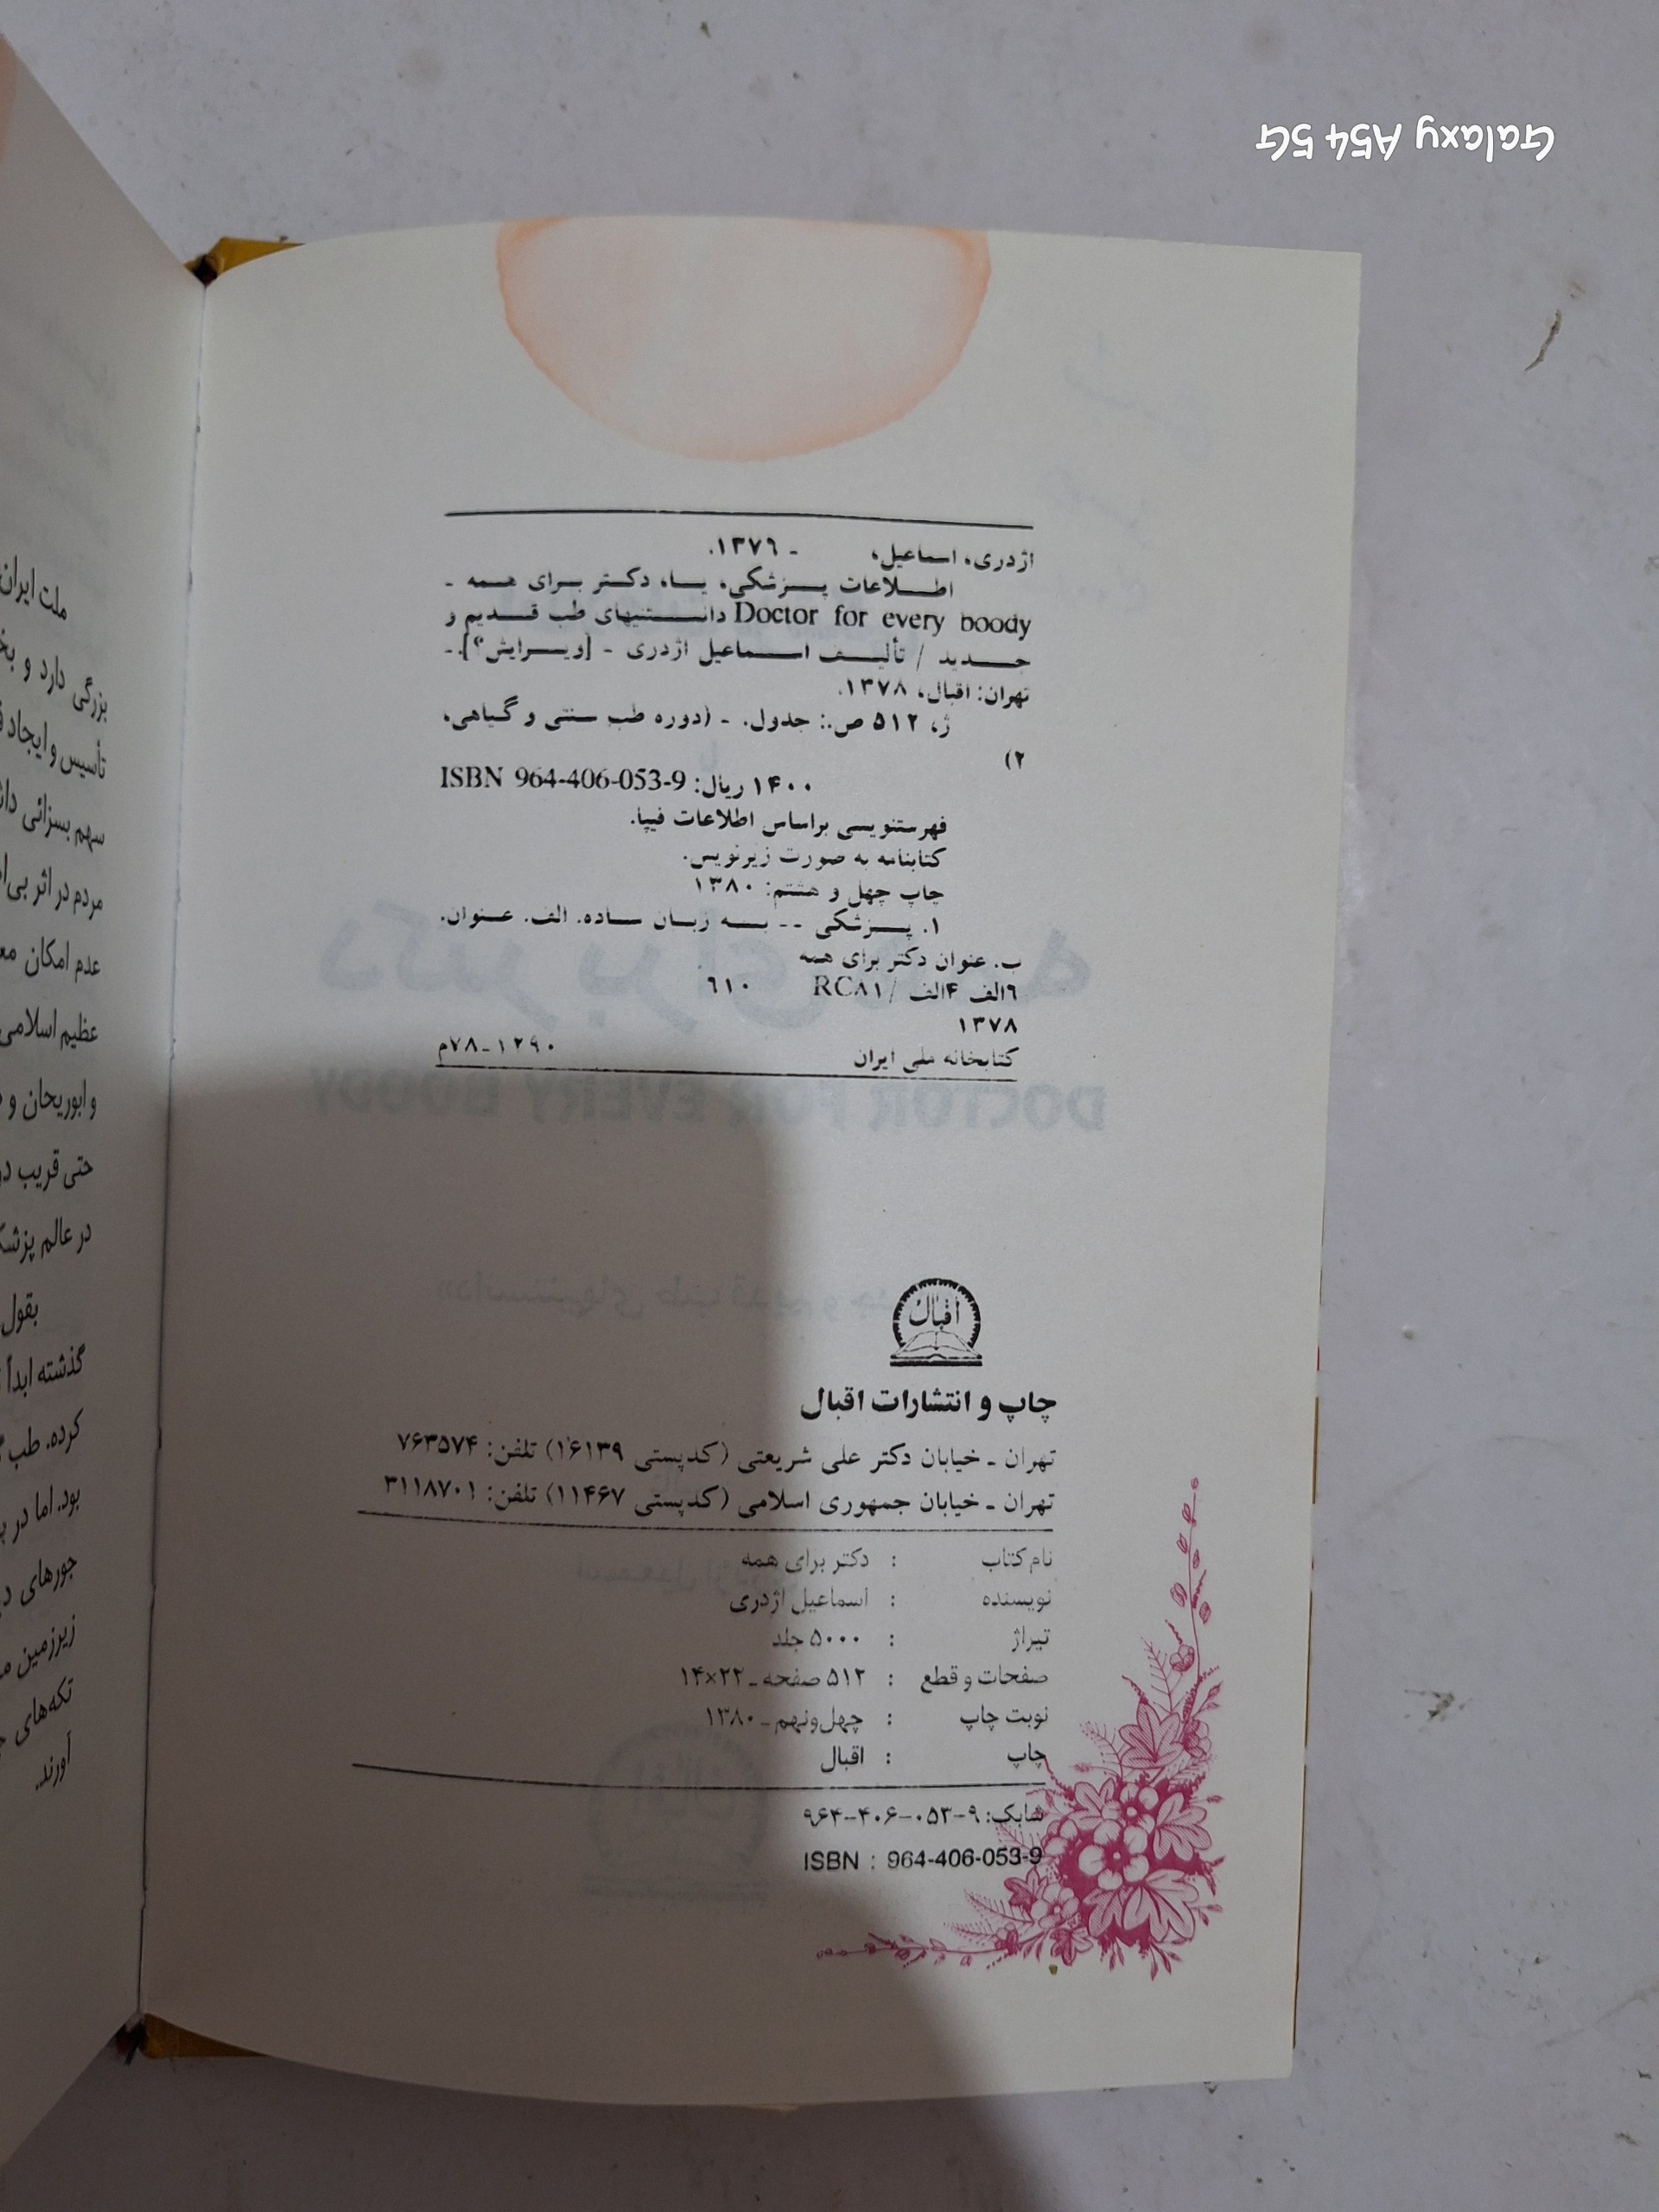 Galaxy A54 5G
اژدری، اسماعیل، - ۱۳۷۶.
اطلاعات پزشکی، یا، دکتر برای همه -
Doctor for every boody دانستنیهای طب قدیم و
جدید / تألیف اسماعیل اژدری - [ویرایش؟]. -
تهران: اقبال، ۱۳۷۸.
ژ، ۵۱۲ ص.: جدول. - (دوره طب سنتی و گیاهی،
۲)
۱۴۰۰ ریال: ISBN 964-406-053-9
فهرستنویسی براساس اطلاعات فیپا.
کتابنامه به صورت زیرنویس.
چاپ چهل و هشتم: ۱۳۸۰
۱. پزشکی -- به زبان ساده. الف. عنوان.
ب. عنوان دکتر برای همه
۶الف ۴الف / RC۸۱ ۶۱۰
۱۳۷۸
کتابخانه ملی ایران ۱۲۹۰-۷۸م
اقبال
چاپ و انتشارات اقبال
تهران ـ خیابان دکتر علی شریعتی (کدپستی ۱۶۱۳۹) تلفن: ۷۶۳۵۷۴
تهران ـ خیابان جمهوری اسلامی (کدپستی ۱۱۴۶۷) تلفن: ۳۱۱۸۷۰۱
نام کتاب : دکتر برای همه
نویسنده : اسماعیل اژدری
تیراژ : ۵۰۰۰ جلد
صفحات و قطع : ۵۱۲ صفحه ـ ۲۲×۱۴
نوبت چاپ : چهل‌ونهم ـ ۱۳۸۰
چاپ : اقبال
شابک: ۹-۰۵۳-۴۰۶-۹۶۴
ISBN : 964-406-053-9
ملت ایران
بزرگی دارد و
تأسیس و ایجاد
سهم بسزائی
مردم در اثر
عدم امکان
عظیم اسلامی
و ابوریحان و
حتی قریب
در عالم
بقول
گذشته ابداً
کرده. طب
بود. اما در
جورهای
زیرزمین
تکه‌های
آورند.